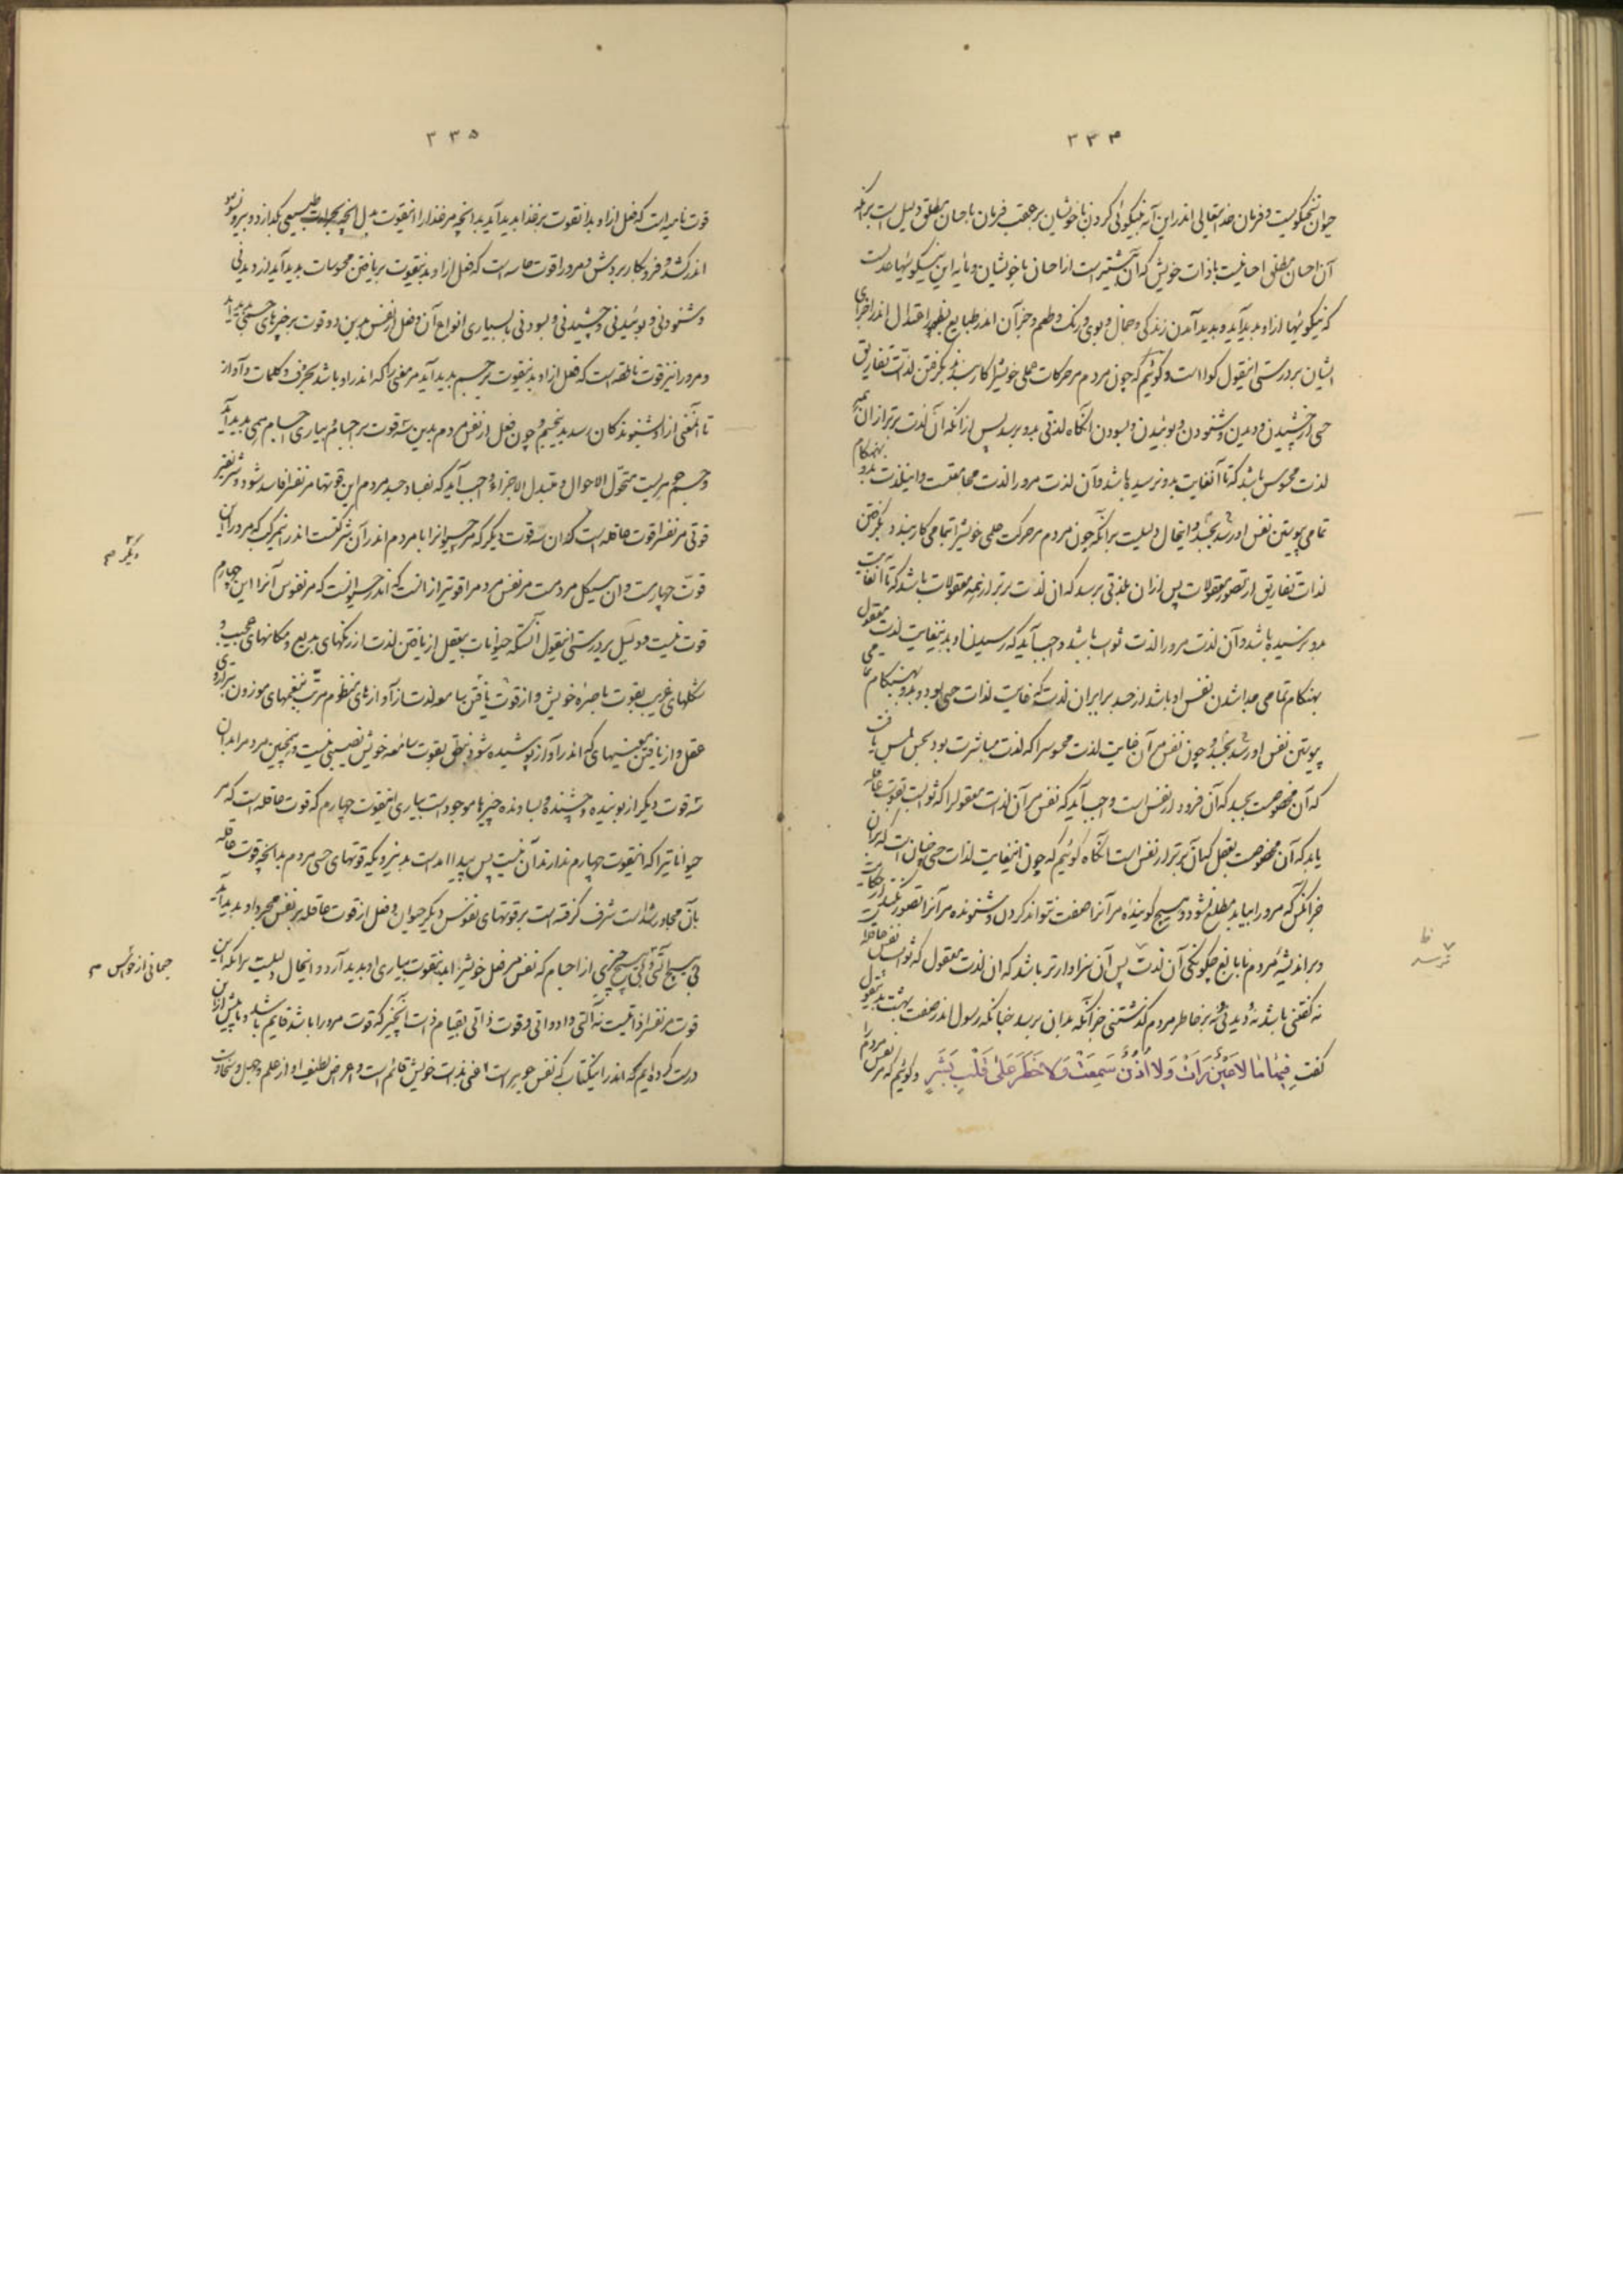 ۳۳۴
حیوان نیکوییست و فرمان خدایتعالی اندر این آیه بنیکوئی کردن با خویشان بر عقب فرمان باحسان مطلق دلیل است بر آنکه
آن احسان مطلق احسانیست با ذات خویش که آن پیشتر است از احسان با خویشان و مایه این نیکوئیها عدلست
که نیکوئیها از او پدید آید و پدید آمدن زندگی و جمال و بوی و رنگ و طعم و جز آن اندر طبایع بظهور اعتدال اندر اجزای
ایشان بر درستی اینقول گوا است و گوئیم که چون مردم مر حرکات حسی خویش را کار بندد بگرفتن لذات تفاریق
حسی از چشیدن و دیدن و شنودن و بوئیدن و بسودن آنگاه لذتی بدو برسد پس از آنکه آن لذت برتر از آن همه
لذت محسوس باشد که تا آنغایت بدو نرسیده باشد و آن لذت مرورا لذت مجامعتست و اینلذت بدو بهنگام
تمامی پیوستن نفس او رسد بجسد و اینحال دلیلست بر آنکه چون مردم مر حرکت علمی خویشرا بتمامی کار بندد و بگرفتن
لذات تفاریق از تصور معقولات پس از آن بلذتی برسد که آن لذت برتر از همه معقولات باشد که تا آنغایت
بدو نرسیده باشد و آن لذت مرورا لذت ثواب باشد و واجب آید که رسیدن او بدینغایت لذت معقول
بهنگام تمامی جدا شدن نفس او باشد از جسد برابر آن لذت که غایت لذات حسی بود و بدو بهنگام تمامی
پیوستن نفس او رسد بجسد و چون نفس مر آن غایت لذت محسوس را که لذت مباشرت بود بحس لمس یافت
که آن مخصوصست بجسد که آن فرود از نفس است واجب آید که نفس مر آن لذت معقول را که ثوابست بقوت عاقله
یابد که آن مخصوصست بعقل کان برتر از نفس است آنگاه گوئیم که چون اینغایت لذات حسی چنان است که بر آن
جز آنکس که مرورا بیابد مطلع نشود و هیچ گوینده مر آنرا صفت نتواند کردن و شنونده مر آنرا تصور نتواند کردن
و بر اندیشه مردم نابالغ چگونگی آن لذت پس آن سزاوارتر باشد که آن لذت معقول که ثوابست
نه گفتنی باشد نه دیدنی و نه بر خاطر مردم گذشتنی جز آنکه بدان برسد چنانکه رسول اندر صفت بهشت بدینقول
گفت فِیهَا مَا لَا عَیْنٌ رَأَتْ وَلَا اُذُنٌ سَمِعَتْ وَلَا خَطَرَ عَلَی قَلْبِ بَشَرٍ و گوئیم که مر نفس مردم را
ظ
نرسد
۳۳۵
قوت نامیه است که فعل از او بدانقوت بر غذا پدید آید بدانچه مر غذا را اینقوت بدل آنچه بحرارت طبیعی بگدازد و بیرون شود
اندر کشد و فرو کار بردش و مرورا قوت حاسه است که فعل از او بدینقوت بر یافتن محسوسات پدید آید از دیدنی
و شنودنی و بوئیدنی و چشیدنی و بسودنی با بسیاری انواع آن و فعل از نفس بدین دو قوت بر چیزهای جسمی پدید آید
و مرورا نیز قوت ناطقه است که فعل از او بدینقوت بر جسم پدید آید مر معنی را که اندر او باشد بحروف و کلمات و آواز
تا آنمعنی از او شنوندگان رسد بدین جسم و چون فعل از نفس مردم بدین سه قوت بر اجسام و بیاری اجسام همی پدید آید
و جسم جوهریست متحول الاحوال و متبدل الاجزاء واجب آید که بفساد جسد مردم این قوتها مر نفس را فاسد شود و شریفتر
قوتی مر نفس را قوت عاقله است که آن سه قوت دیگر که مر حیوانرا با مردم اندر آن شرکتست اندر مرگ که مرورا آن
قوت چهارست و آن هیکل مردمست مر نفس مردم را قویتر از آنست که اندر حیوانست که مر نفوس آنرا این چهارم
قوت نیست و دلیل بر درستی اینقول آنستکه حیوانات بیعقل از یافتن لذت از رنگهای بدیع و مکانهای عجیب و
شکلهای غریب بقوت باصره خویش و از قوت یافتن سامعه لذت از آوازهای منظوم مرتب بنغمهای موزون بترازوی
عقل و از یافتن معنیهای که اندر آواز پوشیده شود بنطق بقوت سامعه خویش نصیبی نیست و همچنین مردم را بدان
سه قوت دیگر از بوینده و چشنده و بساونده چیزها موجود است بیاری اینقوت چهارم که قوت عاقله است که مر
حیوانات را که اینقوت چهارم ندارند آن نیست پس پیدا آمد است بدینرویکه قوتهای حسی مردم بدانچه قوت عاقله
با آن مجاور شده است شرف گرفته است بر قوتهای نفوس دیگر حیوان و فعل از قوت عاقله بر نفس مجرد او پدید آید
بی هیچ آلتی و بی هیچ چیزی از اجسام که نفس مر فعل خویشرا بدینقوت بیاری او پدید آرد و اینحال دلیلست بر آنکه این
قوت مر نفس را ذاتیست نه آلتی و ادواتی و قوت ذاتی بقیام ذات آنچیز که قوت مرورا باشد قایم باشد و ما پیش از این
درست کرده ایم که اندر اینکتاب که نفس جوهر است اعنی بذات خویش قائم است و اعراض لطیف او از علم و جهل و سخاوت
دیگر صح
جسمانی از حواس صح